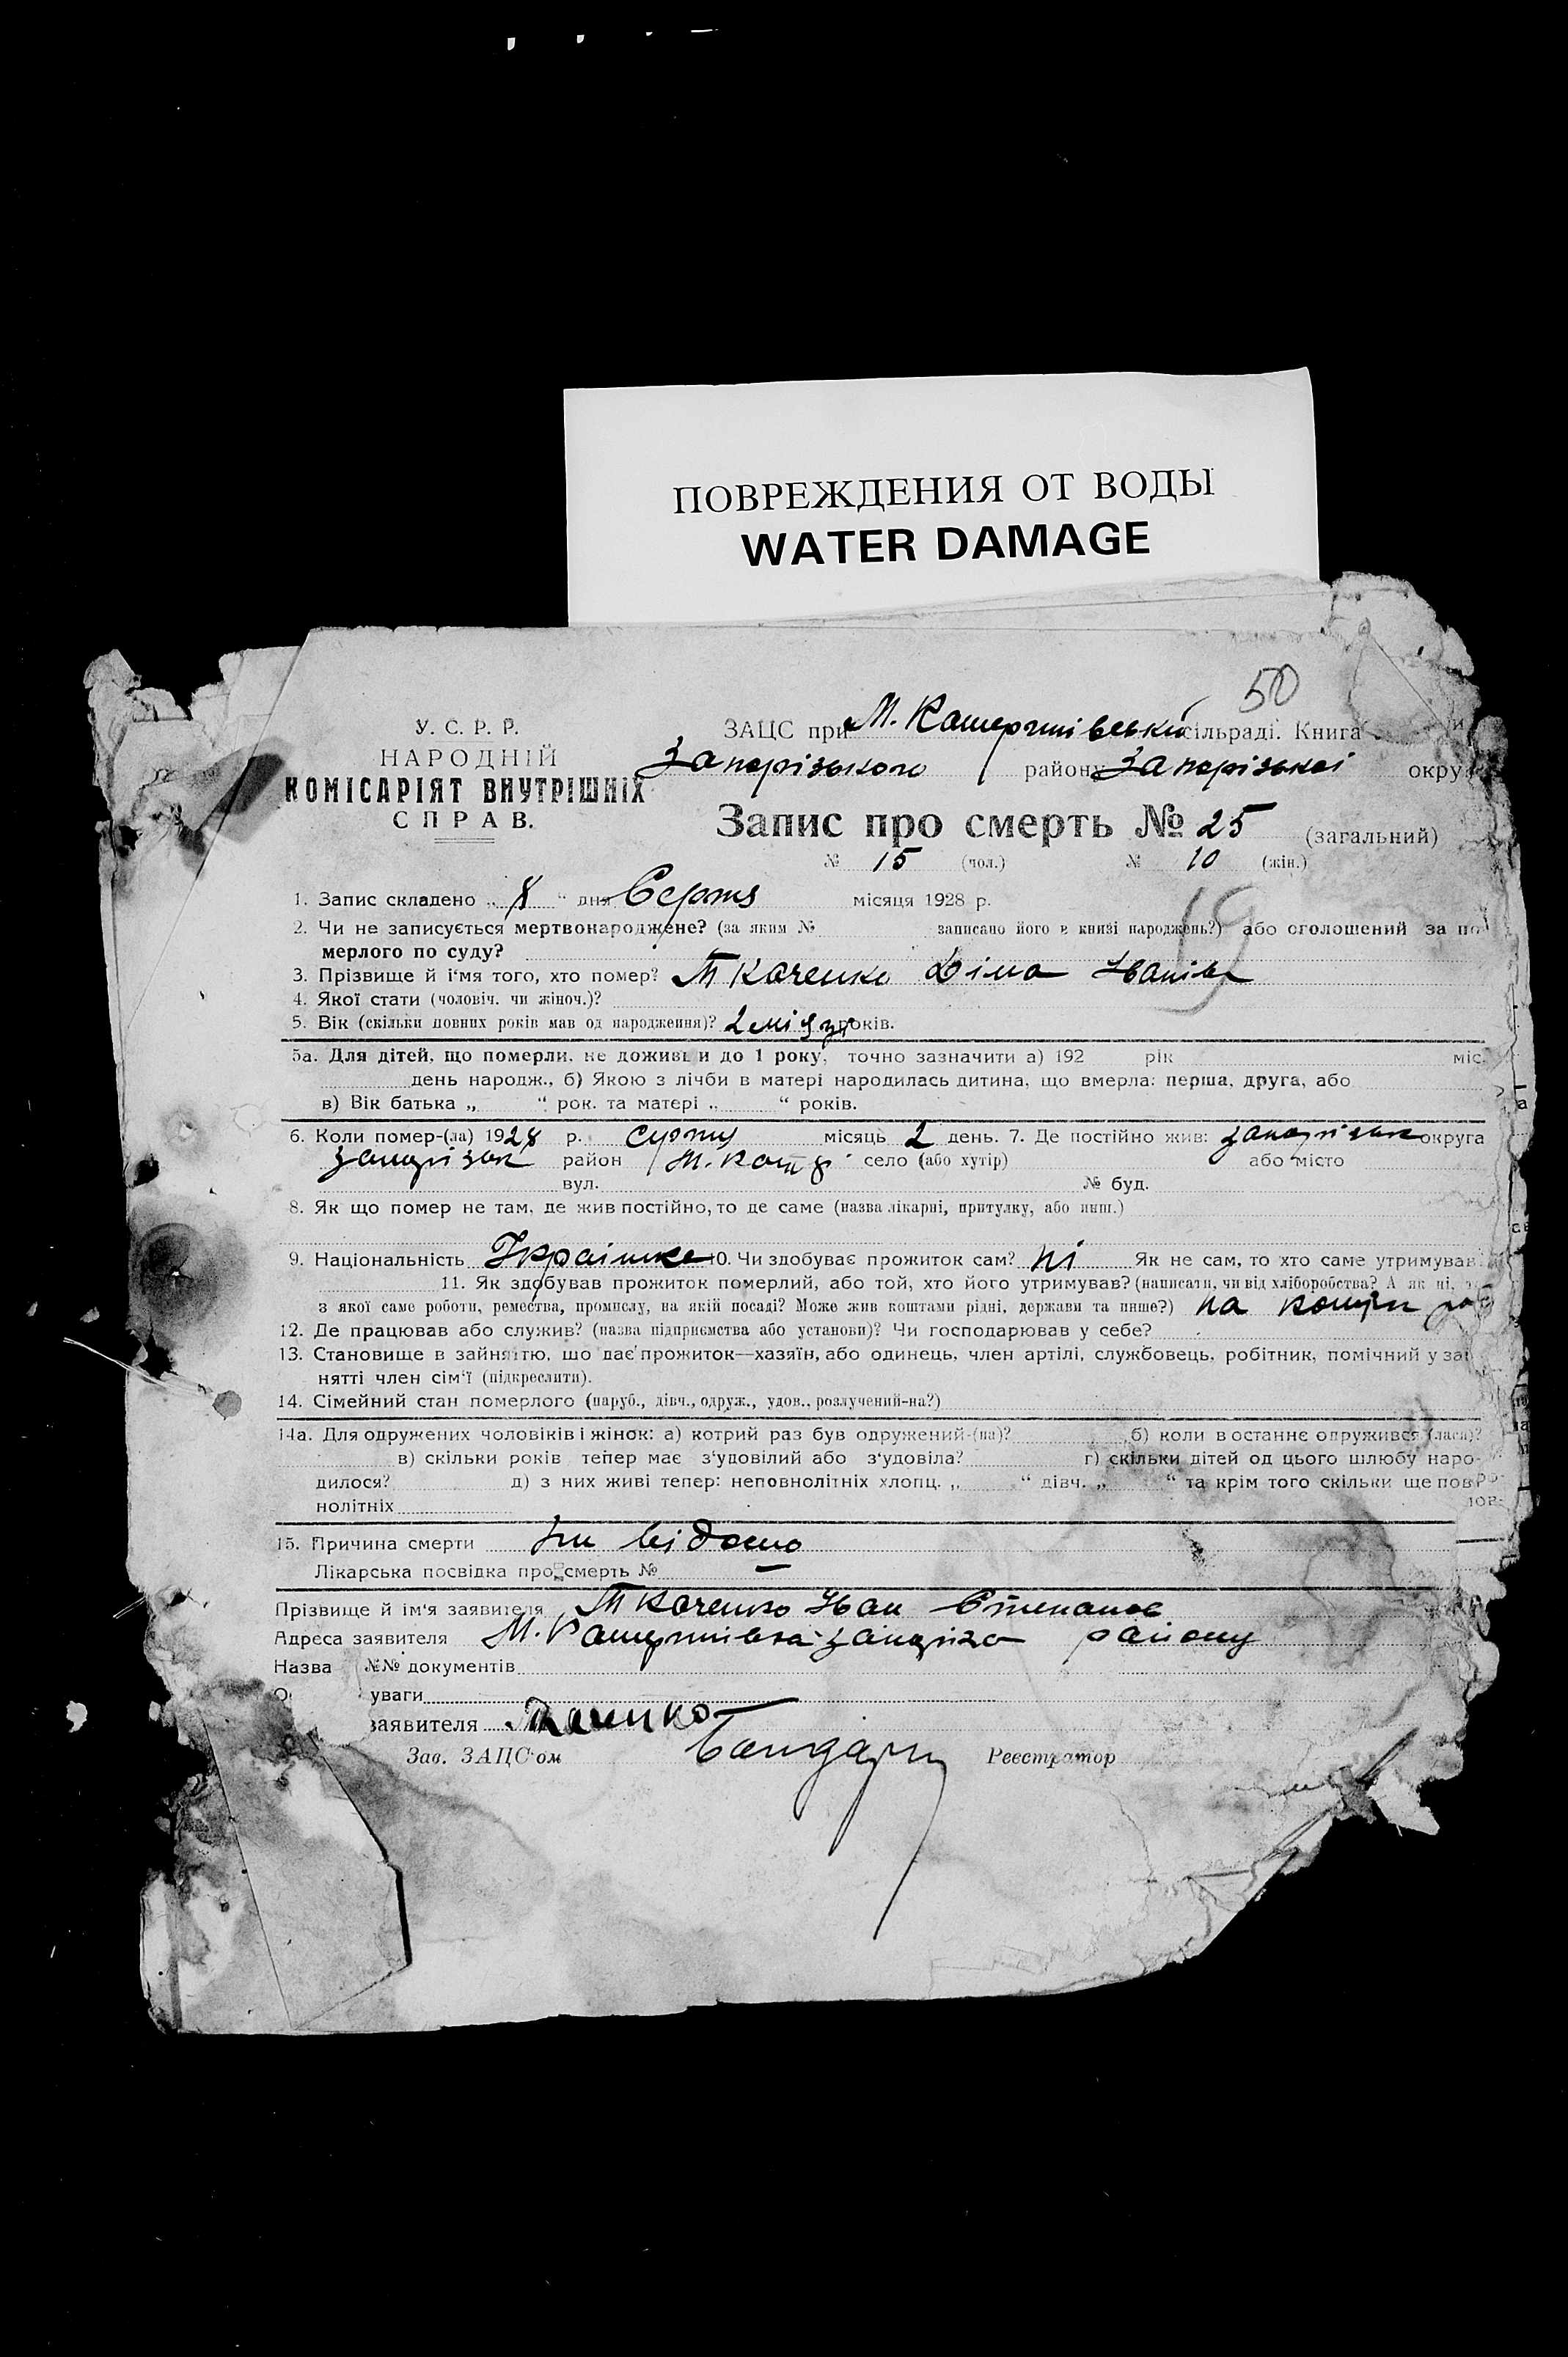 ПОВРЕЖДЕНИЯ ОТ ВОДЫ
WATER DAMAGE
50
У. С. Р. Р.
НАРОДНІЙ
КОМІСАРІЯТ ВНУТРІШНІХ
СПРАВ.
ЗАЦС при М. сільраді. Книга
Запорізького району Запорізької окру
Запис про смерть № 25 (загальний)
№ 15 (чол.) № 10 (жін.)
19
1. Запис складено „ 8 “ дня Серпня місяця 1928 р.
2. Чи не записується мертвонароджене? (за яким № записано його в книзі народжень?) або оголошений за по
мерлого по суду?
3. Прізвище й і'мя того, хто помер? Ткаченко Діма Іванів
4. Якої стати (чоловіч. чи жіноч.)?
5. Вік (скільки повних років мав од народження)? 2 років.
5а. Для дітей, що померли, не доживши до 1 року, точно зазначити а) 192 рік міс.
день народж., б) Якою з лічби в матері народилась дитина, що вмерла: перша, друга, або
в) Вік батька „ “ рок. та матері „ “ років.
6. Коли помер-(ла) 1928 р. місяць 2 день. 7. Де постійно жив: округа
район село (або хутір) або місто
вул. № буд.
8. Як що помер не там, де жив постійно, то де саме (назва лікарні, притулку, або инш.)
9. Національність Українка 10. Чи здобуває прожиток сам? ні Як не сам, то хто саме утримував
11. Як здобував прожиток померлий, або той, хто його утримував? (написати, чи від хліборобства? А як ні,
з якої саме роботи, ремества, промислу, на якій посаді? Може жив коштами рідні, держави та инше?) на
12. Де працював або служив? (назва підприємства або установи)? Чи господарював у себе?
13. Становище в зайняттю, що дає прожиток—хазяїн, або одинець, член артілі, службовець, робітник, помічний у за
нятті член сім'ї (підкреслити).
14. Сімейний стан померлого (паруб., дівч., одруж., удов., розлучений-на?)
14а. Для одружених чоловіків і жінок: а) котрий раз був одружений-(на)? б) коли в останнє одружився (лася)?
в) скільки років тепер має з'удовілий або з'удовіла? г) скільки дітей од цього шлюбу наро-
дилося? д) з них живі тепер: неповнолітніх хлопц. „ “ дівч. „ “ та крім того скільки ще пов
нолітніх
15. Причина смерти відомо
Лікарська посвідка про смерть № —
Прізвище й ім'я заявителя Ткаченко Іван Степанов
Адреса заявителя М. району
Назва №№ документів
уваги
заявителя Ткаченко
Зав. ЗАЦС'ом Реєстратор